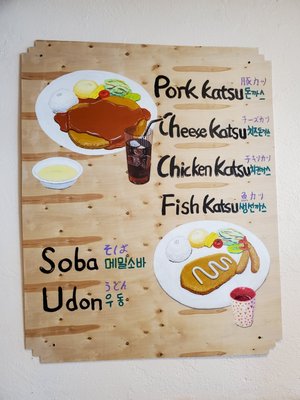 Pork Katsu 豚カツ 돈까스
Cheese Katsu チーズカツ 치즈돈까스
Chicken Katsu チキンカツ 치킨까스
Fish Katsu 魚カツ 생선까스
Soba そば 메밀소바
Udon うどん 우동